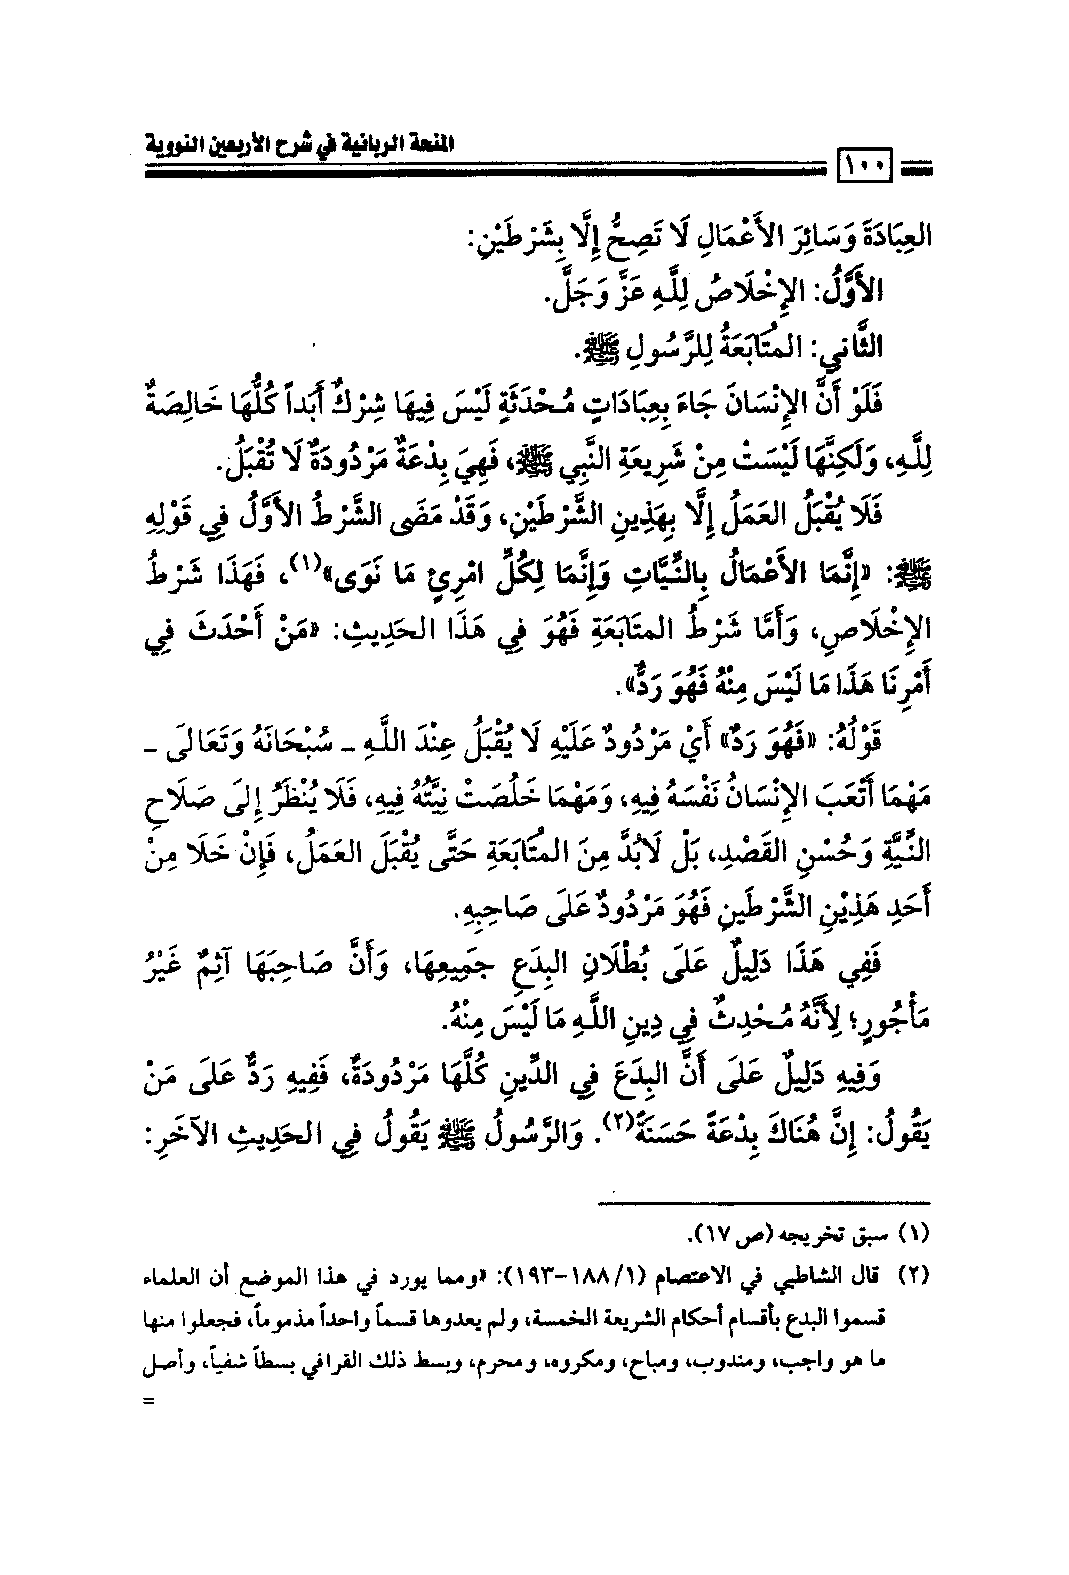 المنحة الربانية في شرح الأربعين النووية
١٠٠
العِبَادَةَ وَسَائِرَ الأَعْمَالِ لَا تَصِحُّ إِلَّا بِشَرْطَيْنِ:
الأَوَّلُ: الإِخْلَاصُ لِلَّهِ عَزَّ وَجَلَّ.
الثَّانِي: المُتَابَعَةُ لِلرَّسُولِ ﷺ.
فَلَوْ أَنَّ الإِنْسَانَ جَاءَ بِعِبَادَاتٍ مُحْدَثَةٍ لَيْسَ فِيهَا شِرْكٌ أَبَداً كُلُّهَا خَالِصَةٌ
لِلَّهِ، وَلَكِنَّهَا لَيْسَتْ مِنْ شَرِيعَةِ النَّبِي ﷺ، فَهِيَ بِدْعَةٌ مَرْدُودَةٌ لَا تُقْبَلُ.
فَلَا يُقْبَلُ العَمَلُ إِلَّا بِهَذِينِ الشَّرْطَيْنِ، وَقَدْ مَضَى الشَّرْطُ الأَوَّلُ فِي قَوْلِهِ
ﷺ: «إِنَّمَا الأَعْمَالُ بِالنِّيَّاتِ وَإِنَّمَا لِكُلِّ امْرِئٍ مَا نَوَى»(١)، فَهَذَا شَرْطُ
الإِخْلَاصِ، وَأَمَّا شَرْطُ المتَابَعَةِ فَهُوَ فِي هَذَا الحَدِيثِ: «مَنْ أَحْدَثَ فِي
أَمْرِنَا هَذَا مَا لَيْسَ مِنْهُ فَهُوَ رَدٌّ».
قَوْلُهُ: «فَهُوَ رَدٌ» أَيْ مَرْدُودٌ عَلَيْهِ لَا يُقْبَلُ عِنْدَ اللَّهِ ـ سُبْحَانَهُ وَتَعَالَى ـ
مَهْمَا أَتْعَبَ الإِنْسَانُ نَفْسَهُ فِيهِ، وَمَهْمَا خَلُصَتْ نِيَّتُهُ فِيهِ، فَلَا يُنْظَرُ إِلَى صَلَاحِ
النِّيَّةِ وَحُسْنِ القَصْدِ، بَلْ لَابُدَّ مِنَ المُتَابَعَةِ حَتَّى يُقْبَلَ العَمَلُ، فَإِنْ خَلَا مِنْ
أَحَدِ هَذِيْنِ الشَّرْطَينِ فَهُوَ مَرْدُودٌ عَلَى صَاحِبِهِ.
فَفِي هَذَا دَلِيلٌ عَلَى بُطْلَانِ البِدَعِ جَمِيعِهَا، وَأَنَّ صَاحِبَهَا آثِمٌ غَيْرُ
مَأْجُورٍ؛ لِأَنَّهُ مُحْدِثٌ فِي دِينِ اللَّهِ مَا لَيْسَ مِنْهُ.
وَفِيهِ دَلِيلٌ عَلَى أَنَّ البِدَعَ فِي الدِّينِ كُلَّهَا مَرْدُودَةٌ، فَفِيهِ رَدٌّ عَلَى مَنْ
يَقُولُ: إِنَّ هُنَاكَ بِدْعَةً حَسَنَةً(٢). وَالرَّسُولُ ﷺ يَقُولُ فِي الحَدِيثِ الآخَرِ:
(١) سبق تخريجه (ص ١٧).
(٢) قال الشاطبي في الاعتصام (١/ ١٨٨-١٩٣): «ومما يورد في هذا الموضع أن العلماء
قسموا البدع بأقسام أحكام الشريعة الخمسة، ولم يعدوها قسماً واحداً مذموماً، فجعلوا منها
ما هو واجب، ومندوب، ومباح، ومكروه، ومحرم، وبسط ذلك القرافي بسطاً شفياً، وأصل
=